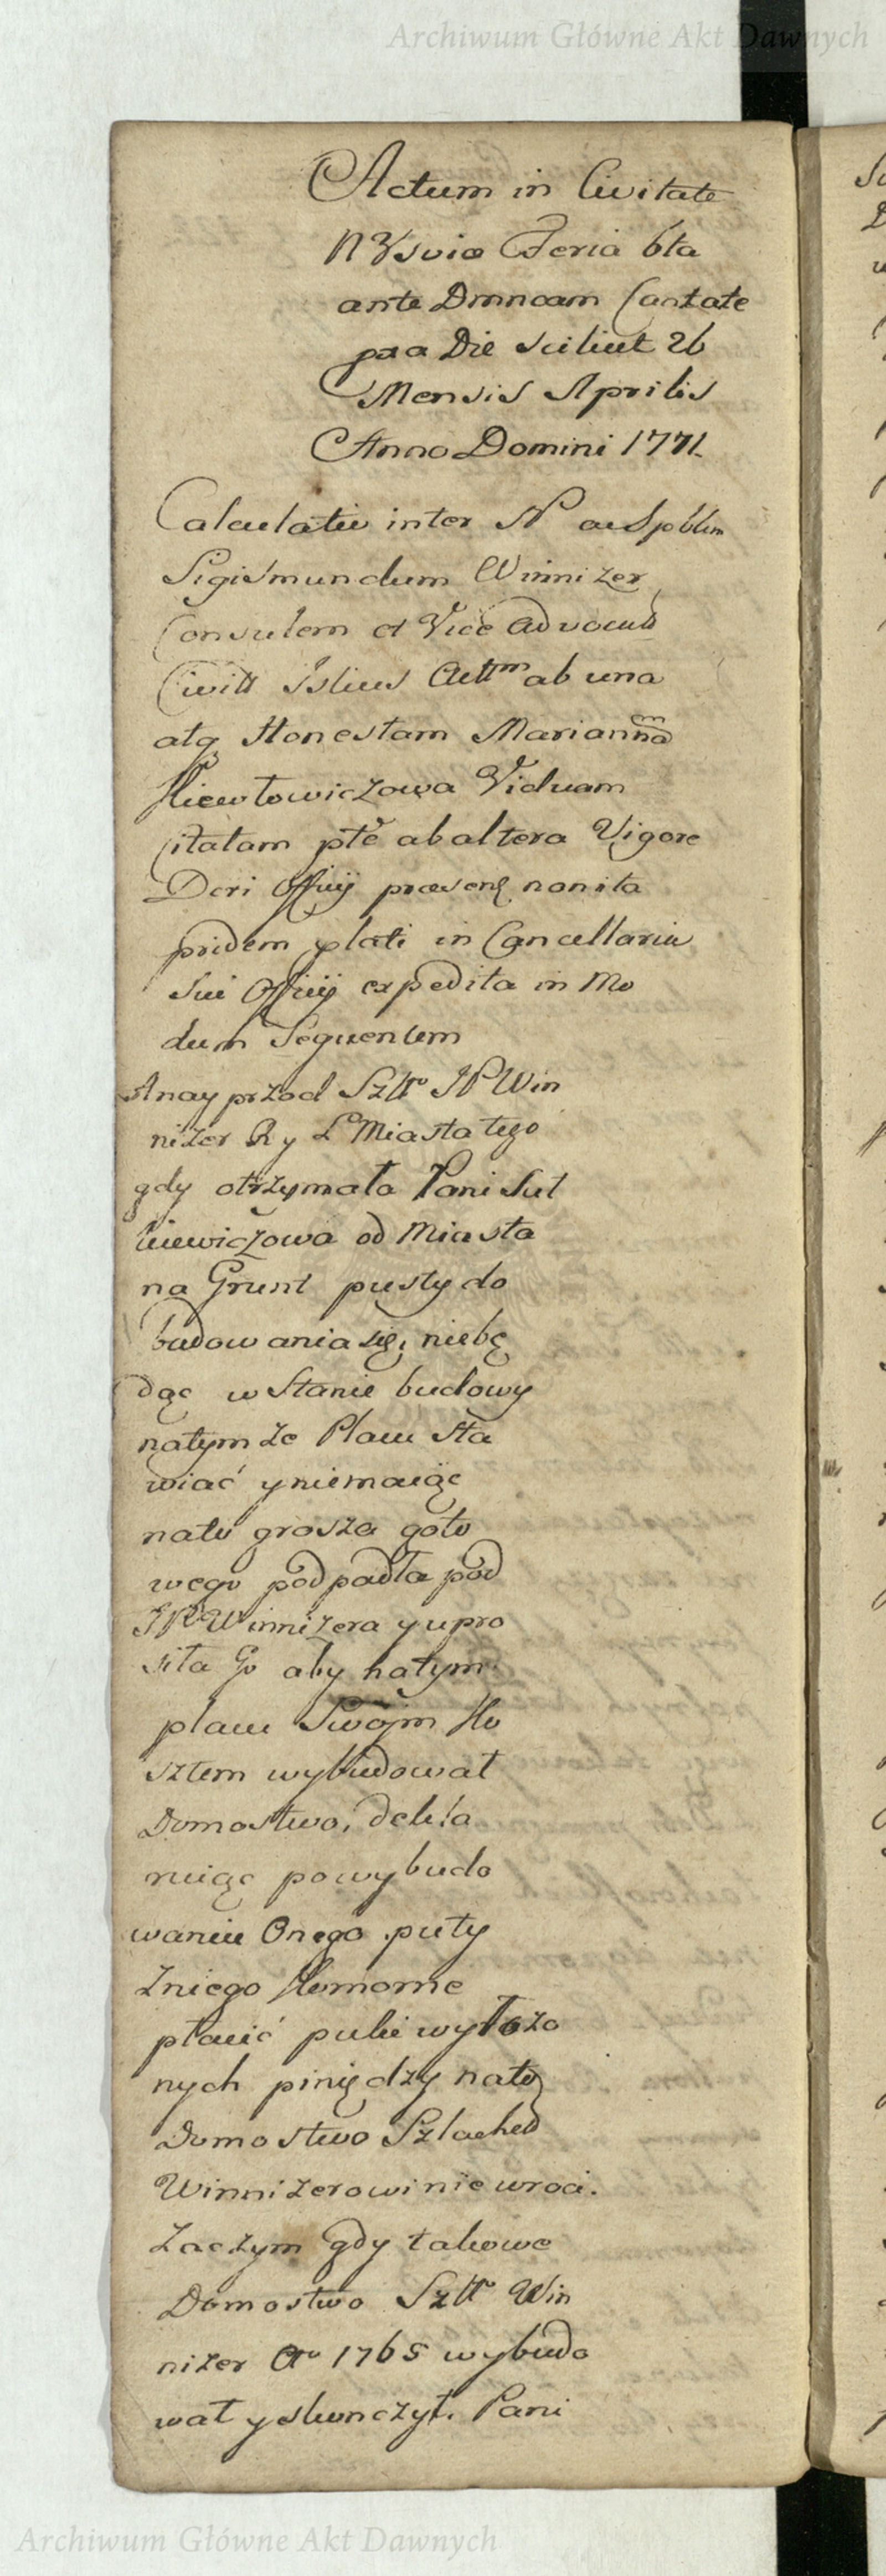 Archiwum Główne Akt Dawnych
Actum in Civitate
Feria 6ta
ante Dmncam Cantate
pra Die scilicet 26
Mensis Aprilis
Anno Domini 1771
Calculatio inter N ac Spblem
Sigismundum Winnizer
Consulem et Vice Advocat
Civitt Istius Acttm ab una
atq Honestam Mariannam
Viduam
Citatam pte ab altera Vigore
Dcri Officij praesenq non ita
pridem plati in Cancellaria
Sui Officij expedita in Mo
dum Sequentem
Anay przod Szltt JP Win
nizer R y L Miasta tego
gdy otrzymała Pani Sut
kiewiczowa od Miasta
na Grunt pusty do
budowania się, niebę
dąc w Stanie budowy
natymże Placu sta
wiać y niemaiąc
nato grosza goto
wego podpadła pod
JP Winnizera y upro
siła Go aby natym
placu Swoim Ko
sztem wybudował
Domostwo, dekla
ruiąc powybudo
waniu Onego puty
Zniego Komorne
płacić puki wyłożo
nych piniędzy nato
Domostwo Szlached
Winnizerowi nie wroci.
Zaczym gdy takowe
Domostwo Szltt Win
nizer Ao 1765 wybudo
wał y skonczył. Pani
Archiwum Główne Akt Dawnych